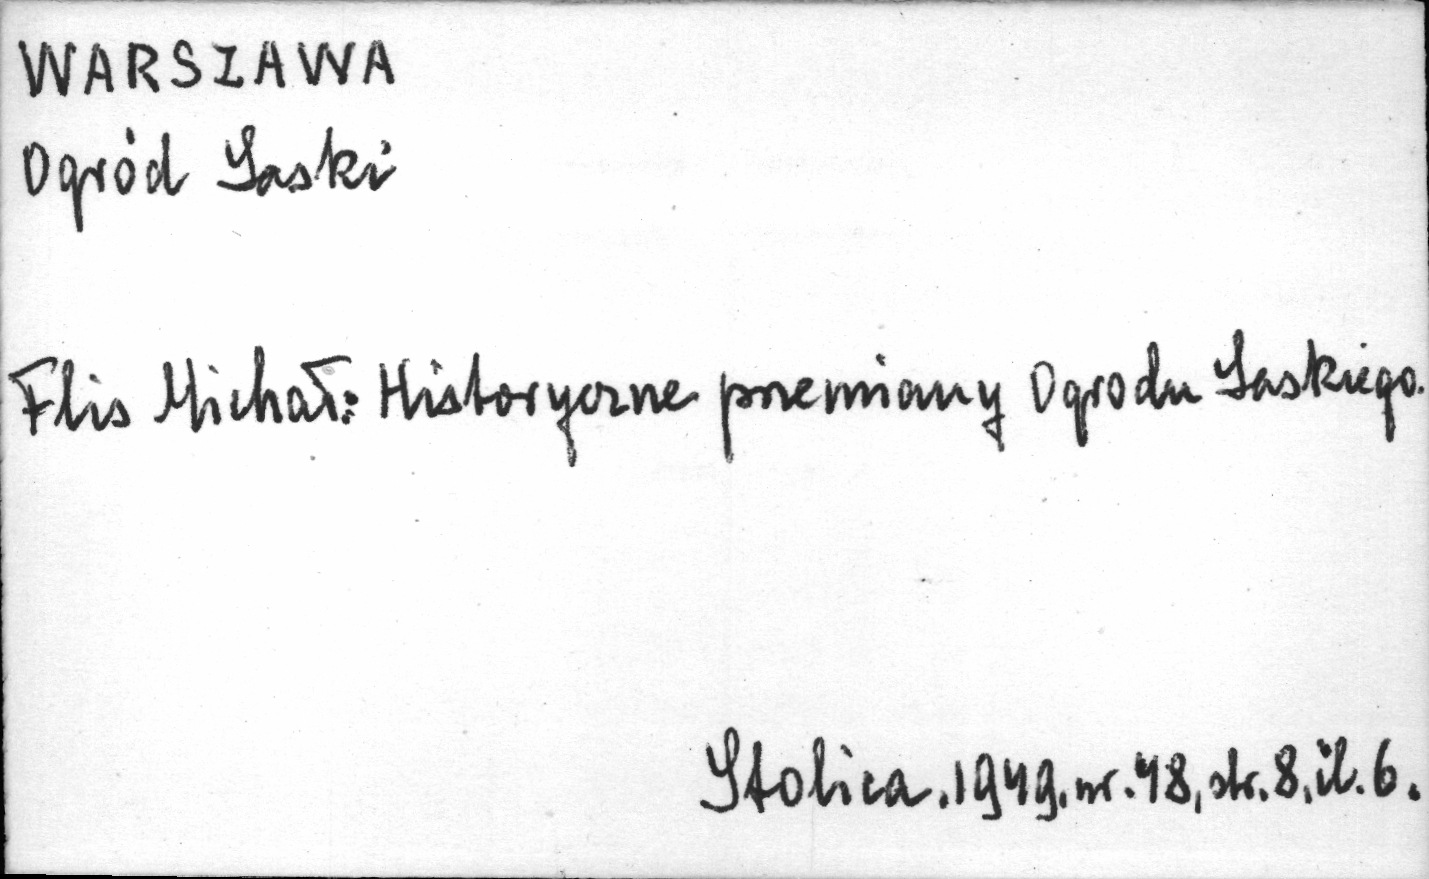 WARSZAWA
Ogród Saski
Flis Michał: Historyczne przemiany Ogrodu Saskiego.
Stolica. 1949. nr. 48, str. 8, il. 6.